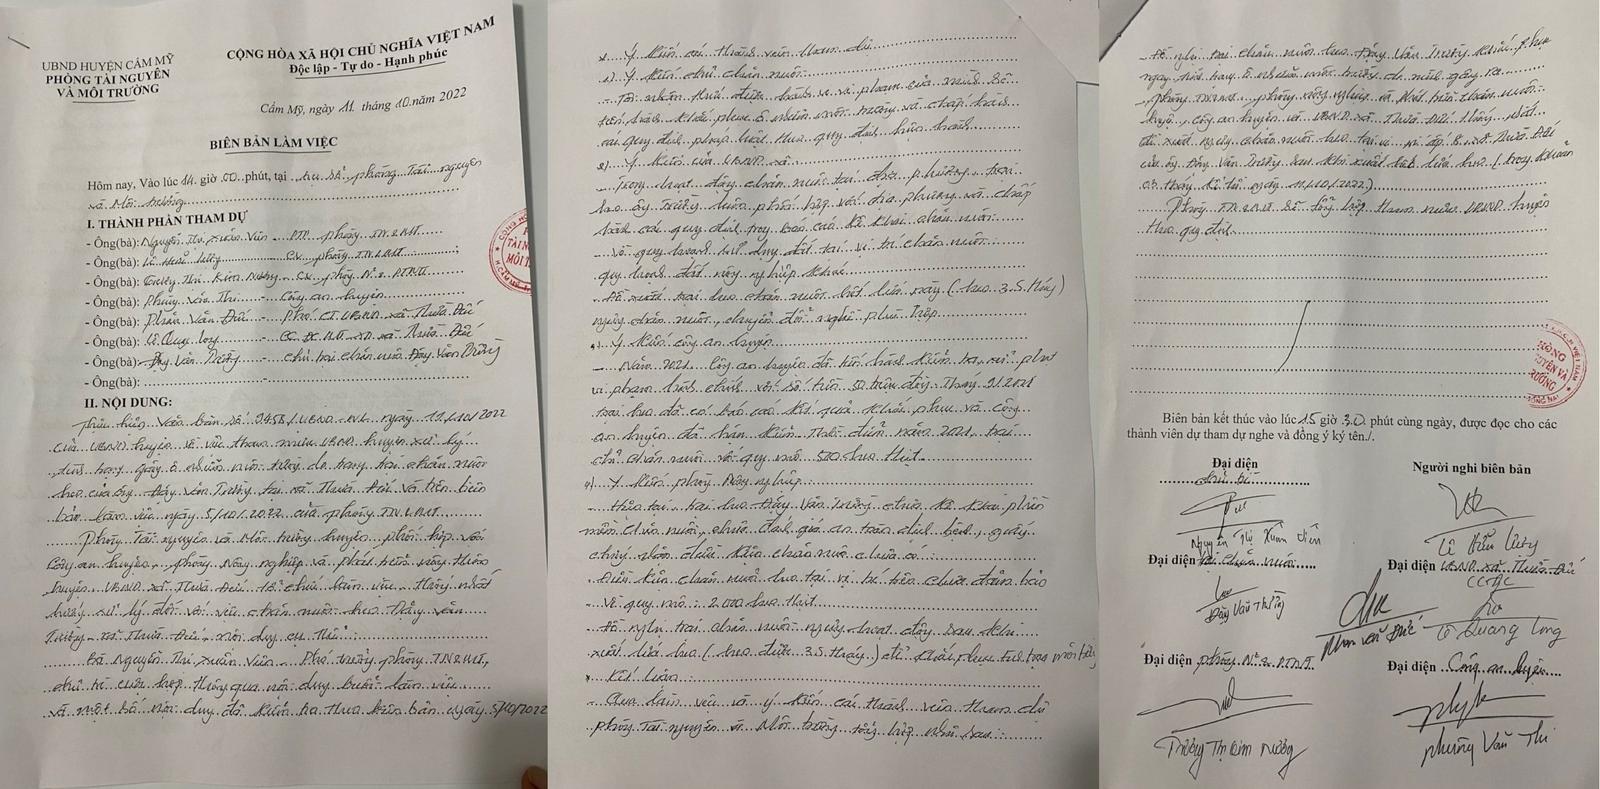 UBND HUYỆN CẨM MỸ
PHÒNG TÀI NGUYÊN
VÀ MÔI TRƯỜNG
CỘNG HÒA XÃ HỘI CHỦ NGHĨA VIỆT NAM
Độc lập - Tự do - Hạnh phúc
Cẩm Mỹ, ngày 11 tháng 10 năm 2022
BIÊN BẢN LÀM VIỆC
Hôm nay, Vào lúc 14 giờ 00 phút, tại trụ sở phòng Tài nguyên
và Môi trường
I. THÀNH PHẦN THAM DỰ
- Ông(bà): Nguyễn Thị Xuân Viên - PTP phòng TN&MT
- Ông(bà): - CV phòng TN&MT
- Ông(bà): Trương Thị Kim Nương - CV phòng N° & PTNT
- Ông(bà): Phùng Văn Thi - Công an huyện
- Ông(bà): Phan Văn Đức - Phó CT UBND xã Thừa Đức
- Ông(bà): Tô Quang Long - CC ĐC MT XD xã Thừa Đức
- Ông(bà): Đặng Văn Trường - chủ trại chăn nuôi Đặng Văn Trường
- Ông(bà):
II. NỘI DUNG:
Thực hiện Văn bản số 9458/UBND-NL ngày 11/10/2022
của UBND huyện về việc tham mưu UBND huyện xử lý
tình trạng gây ô nhiễm môi trường do trang trại chăn nuôi
heo của ông Đặng Văn Trường tại xã Thừa Đức và trên biên
bản làm việc ngày 5/10/2022 của phòng TN&MT
Phòng Tài nguyên và Môi trường huyện phối hợp với
Công an huyện, phòng Nông nghiệp và phát triển nông thôn
huyện, UBND xã Thừa Đức tổ chức làm việc thống nhất
hướng xử lý đối với việc chăn nuôi heo Đặng Văn
Trường - xã Thừa Đức, nội dung cụ thể:
Bà Nguyễn Thị Xuân Viên - Phó trưởng phòng TN&MT,
chủ trì cuộc họp thông qua nội dung buổi làm việc
và một số nội dung đã kiểm tra theo biên bản ngày 5/10/2022
* Ý kiến các thành viên tham dự
* Ý kiến chủ chăn nuôi
- Tôi nhận thấy được hành vi vi phạm của mình sẽ
tiến hành khắc phục ô nhiễm môi trường và chấp hành
các quy định pháp luật theo quy định hiện hành
* Ý kiến của UBND xã
- Trong hoạt động chăn nuôi tại địa phương, trại
heo ông Trường luôn phối hợp với địa phương và chấp
hành các quy định trong báo cáo kê khai chăn nuôi
- Về quy hoạch sử dụng đất tại vị trí chăn nuôi:
quy hoạch đất nông nghiệp khác
- Đề xuất trại heo chăn nuôi hết lứa này (heo 3.5 tháng)
ngừng chăn nuôi, chuyển đổi nghề phù hợp
* Ý kiến công an huyện
- Năm 2021 Công an huyện đã tiến hành kiểm tra, xử phạt
vi phạm hành chính với số tiền 50 triệu đồng. Tháng 9/2021
trại heo đã có báo cáo kết quả khắc phục và Công
an huyện đã kiểm. Thời điểm năm 2021, trại
chỉ chăn nuôi với quy mô 500 heo thịt
* Ý kiến phòng Nông nghiệp
- Hiện tại, trại heo Đặng Văn Trường chưa kê khai
chăn nuôi, chưa đánh giá an toàn dịch bệnh, giấy
chứng nhận điều kiện chăn nuôi chưa có
- Điều kiện chăn nuôi heo tại vị trí trên chưa đảm bảo
- Về quy mô: 2.000 heo thịt
- Đề nghị trại chăn nuôi ngừng hoạt động sau khi
xuất lứa heo (heo được 3.5 tháng) để khắc phục
* Kết luận
- Qua làm việc và ý kiến các thành viên tham dự
phòng Tài nguyên và Môi trường tổng hợp như sau:
- Đề nghị trại chăn nuôi heo Đặng Văn Trường khắc phục
ngay tình trạng ô nhiễm môi trường do mình gây ra
- Phòng TN&MT, phòng nông nghiệp và Phát triển nông thôn
huyện, công an huyện và UBND xã Thừa Đức thống nhất
đề xuất ngừng chăn nuôi heo tại vị trí ấp 8, xã Thừa Đức
của ông Đặng Văn Trường sau khi xuất hết lứa heo (trong khoảng
03 tháng kể từ ngày 11/10/2022)
Phòng TN&MT sẽ tổng hợp tham mưu UBND huyện
theo quy định
Biên bản kết thúc vào lúc 15 giờ 30 phút cùng ngày, được đọc cho các
thành viên dự tham dự nghe và đồng ý ký tên./.
Đại diện
chủ trì
Nguyễn Thị Xuân Viên
Người nghi biên bản
Đại diện trại chăn nuôi
Đặng Văn Trường
Đại diện UBND xã Thừa Đức
CCĐC
Phan Văn Đức
Tô Quang Long
Đại diện phòng N° & PTNT
Trương Thị Kim Nương
Đại diện Công an huyện
Phùng Văn Thi